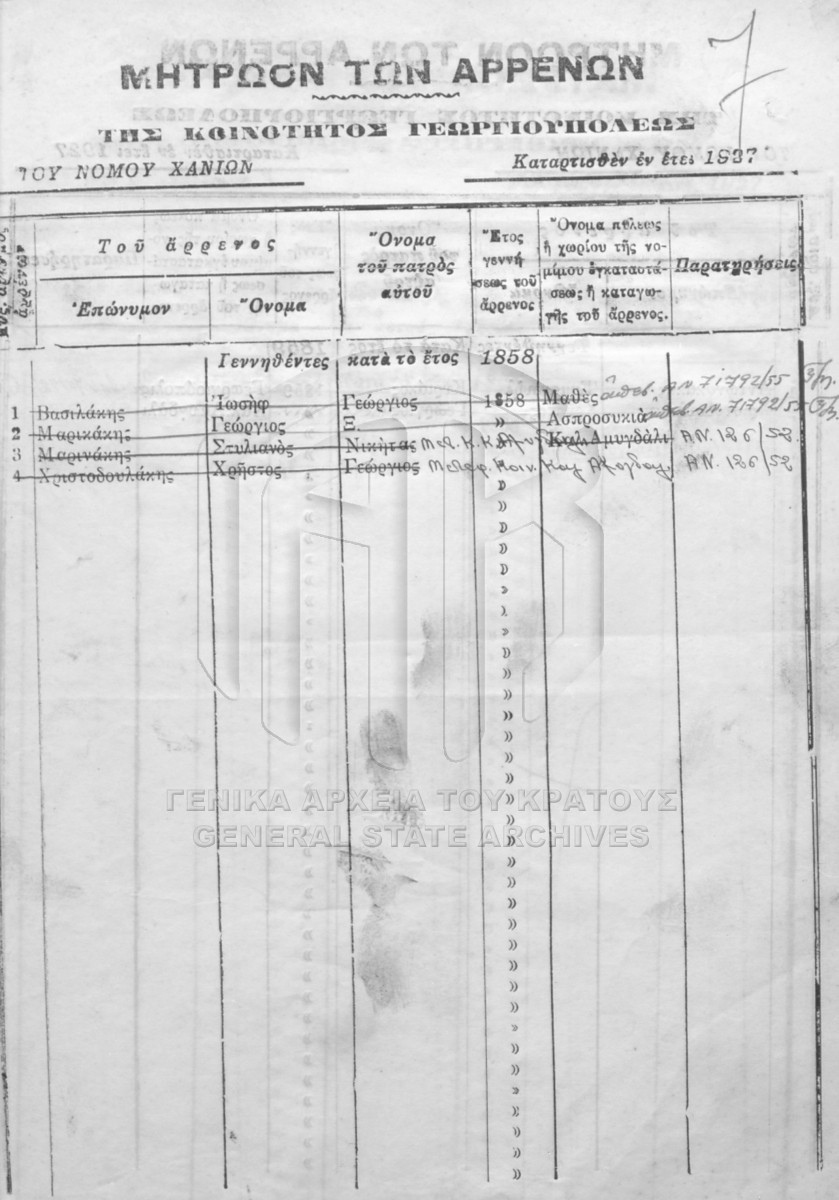 7
ΜΗΤΡΩΟΝ ΤΩΝ ΑΡΡΕΝΩΝ
ΤΗΣ ΚΟΙΝΟΤΗΤΟΣ ΓΕΩΡΓΙΟΥΠΟΛΕΩΣ
ΤΟΥ ΝΟΜΟΥ ΧΑΝΙΩΝ
Καταρτισθὲν ἐν ἔτει 1937
Τοῦ ἄρρενος
Ἐπώνυμον Ὄνομα
Ὄνομα
τοῦ πατρὸς
αὐτοῦ
Ἔτος
γεννή
σεως τοῦ
ἄρρενος
Ὄνομα πόλεως
ἢ χωρίου τῆς νο-
μίμου ἐγκαταστά-
σεως ἢ καταγω-
γῆς τοῦ ἄρρενος.
Παρατηρήσεις
Γεννηθέντες κατὰ τὸ ἔτος 1858
1 Βασιλάκης Ἰωσὴφ Γεώργιος 1858 Μαθὲς ἀπεβ. Α.Ν. 71792/55
2 Μαρικάκης Γεώργιος Ξ. » Ἀσπροσυκιὰ ἀπεβ. Α.Ν. 71792/55
3 Μαρινάκης Στυλιανὸς Νικήτας Καλ. Ἀμυγδάλι Α.Ν. 126/52
4 Χριστοδουλάκης Χρῆστος Γεώργιος Μεταφ. Κοιν. Α.Ν. 126/52
ΓΕΝΙΚΑ ΑΡΧΕΙΑ ΤΟΥ ΚΡΑΤΟΥΣ
GENERAL STATE ARCHIVES